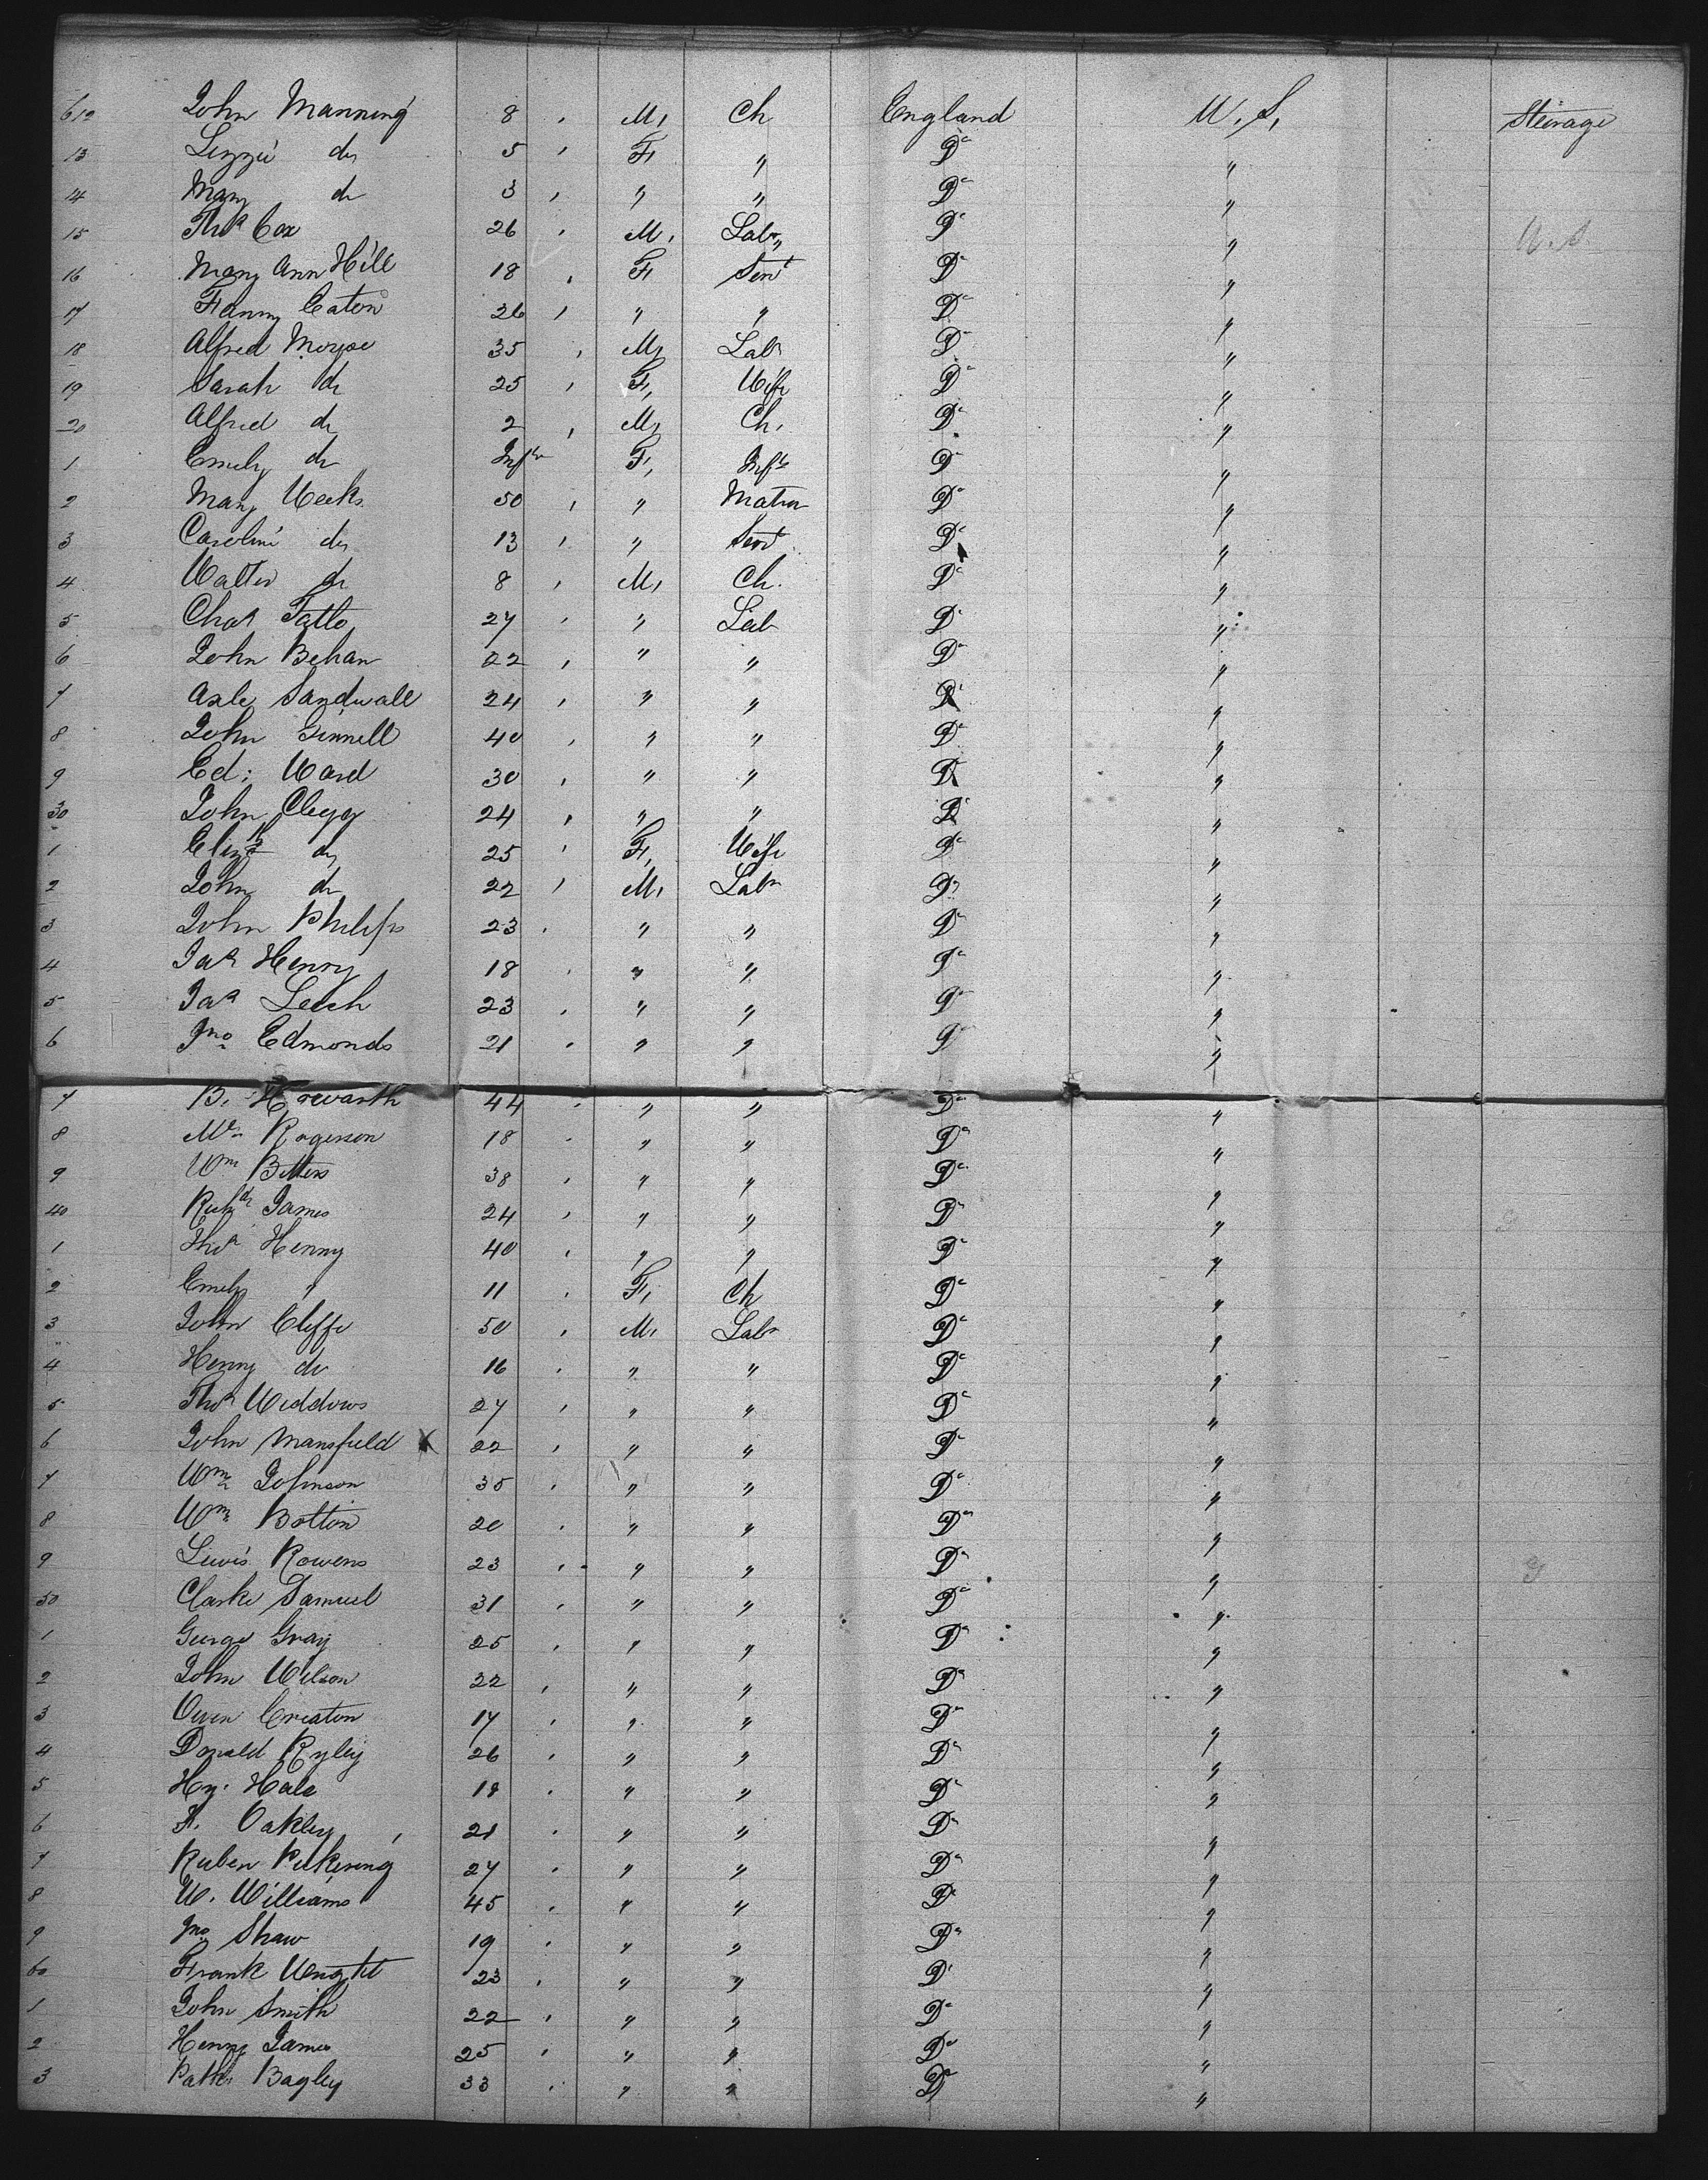 612 John Manning 8 , M, Ch England U. S, Steerage
13 Lizzie do 5 , F, " Do "
14 Mary do 3 , " " Do "
15 Thos Cox 26 , M, Labr " Do " U. S.
16 Mary Ann Hill 18 , F, Servt Do "
17 Fanny Eaton 26 , " " Do "
18 Alfred 35 , M, Labr Do "
19 Sarah do 25 , F, Wife Do "
20 Alfred do 2 , M, Ch, Do "
1 Emily do Inft F, Inft Do "
2 Mary Weeks 50 , " Matron Do "
3 Caroline do 13 , " Servt Do "
4 Walter do 8 , M, Ch. Do "
5 Chas 27 , " Lab Do "
6 John Behan 22 , " " Do "
7 Axle Sandwall 24 , " " Do "
8 John Ginnell 40 , " " Do "
9 Ed: Ward 30 , " " Do "
30 John Clegg 24 , " " Do "
1 Elizth do 25 , F, Wife Do "
2 John do 22 , M, Labr Do "
3 John Philips 23 , " " Do "
4 Jas Henry 18 , " " Do "
5 Jas Leech 23 , " " Do "
6 Jno Edmonds 21 , " " Do "
7 B. Howarth 44 , " " Do "
8 Rogerson 18 , " " Do "
9 Wm Betters 38 , " " Do "
40 Richd James 24 , " " Do "
1 Thos Henry 40 , " " Do "
2 Emily " 11 , F, Ch Do "
3 John Cliffe 50 , M, Labr Do "
4 Henry do 16 , " " Do "
5 Thos Widdows 27 , " " Do "
6 John Mansfield X 22 , " " Do "
7 Wm Johnson 35 , " " Do "
8 Wm Botton 20 , " " Do "
9 Lewis Rowens 23 , " " Do "
50 Clarke Samuel 31 , " " Do "
1 George Gray 25 , " " Do "
2 John Wilson 22 , " " Do "
3 Owen Creaton 17 , " " Do "
4 Donald Ryley 26 , " " Do "
5 Hy. Hale 18 , " " Do "
6 Oakley 21 , " " Do "
7 Ruben Pickering 27 , " " Do "
8 W. Williams 45 , " " Do "
9 Jno Shaw 19 , " " Do "
60 Frank Wright 23 , " " Do "
1 John Smith 22 , " " Do "
2 Henry James 25 , " " Do "
3 Patk Bagley 33 , " " Do "